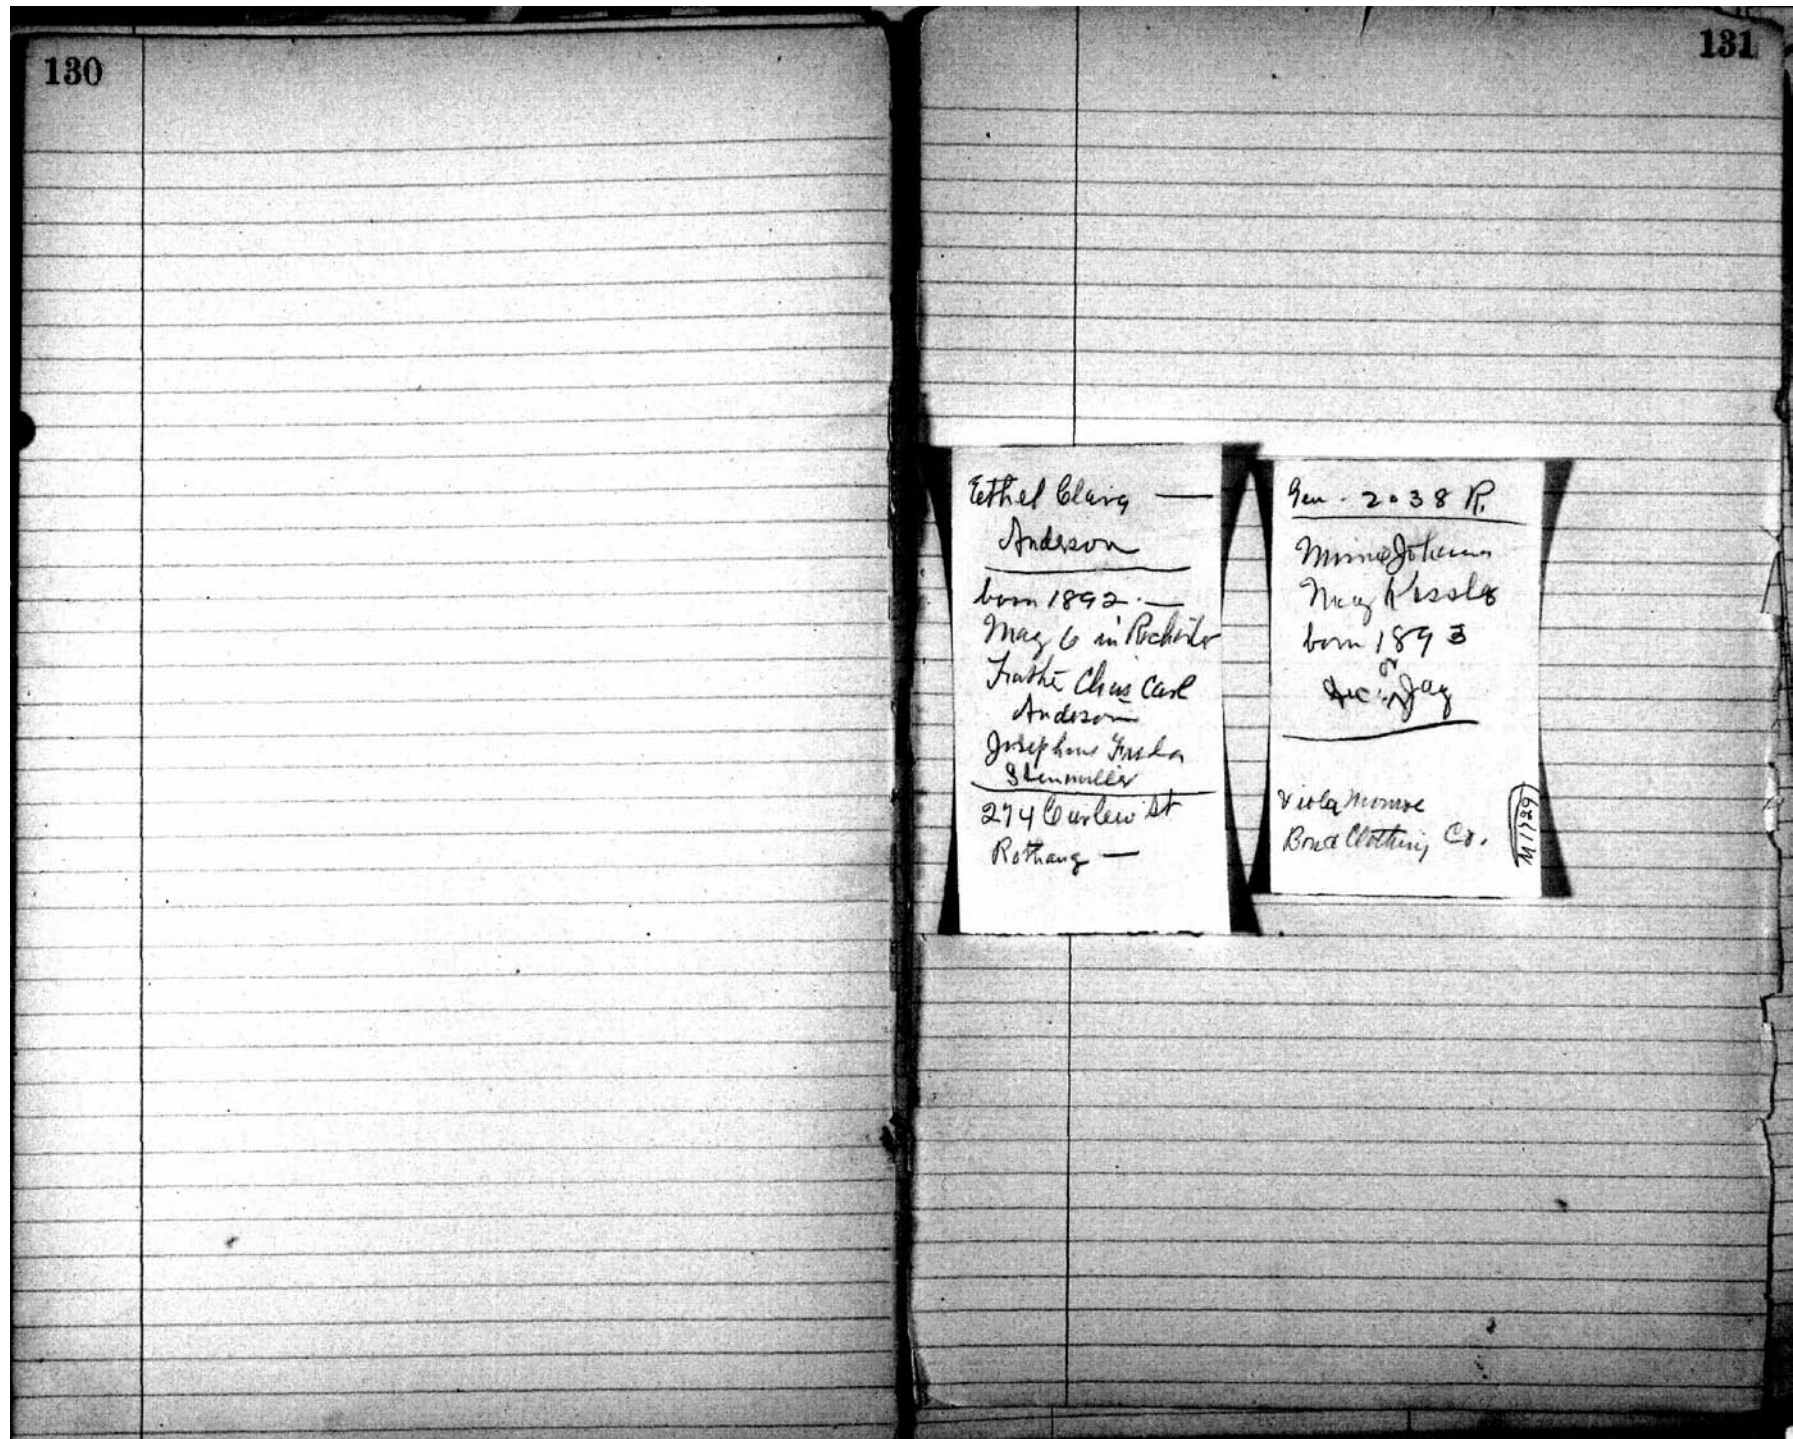 130
131
Eethel Clara —
Anderson
born 1892. —
May 6 in Rochester
Chas Carl
Anderson
Josephine Freda
274 Curlew St
—
Gen. 2038 R.
Minnie Johanna
May Kessler
born 1893
or
Jay
Viola Monroe
Bond Clothing Co.